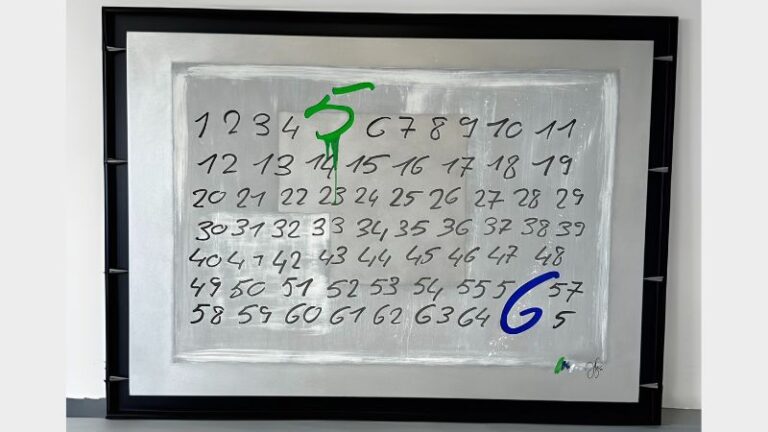 1 2 3 4 5 6 7 8 9 10 11
12 13 14 15 16 17 18 19
20 21 22 23 24 25 26 27 28 29
30 31 32 33 34 35 36 37 38 39
40 41 42 43 44 45 46 47 48
49 50 51 52 53 54 55 56 57
58 59 60 61 62 63 64 65